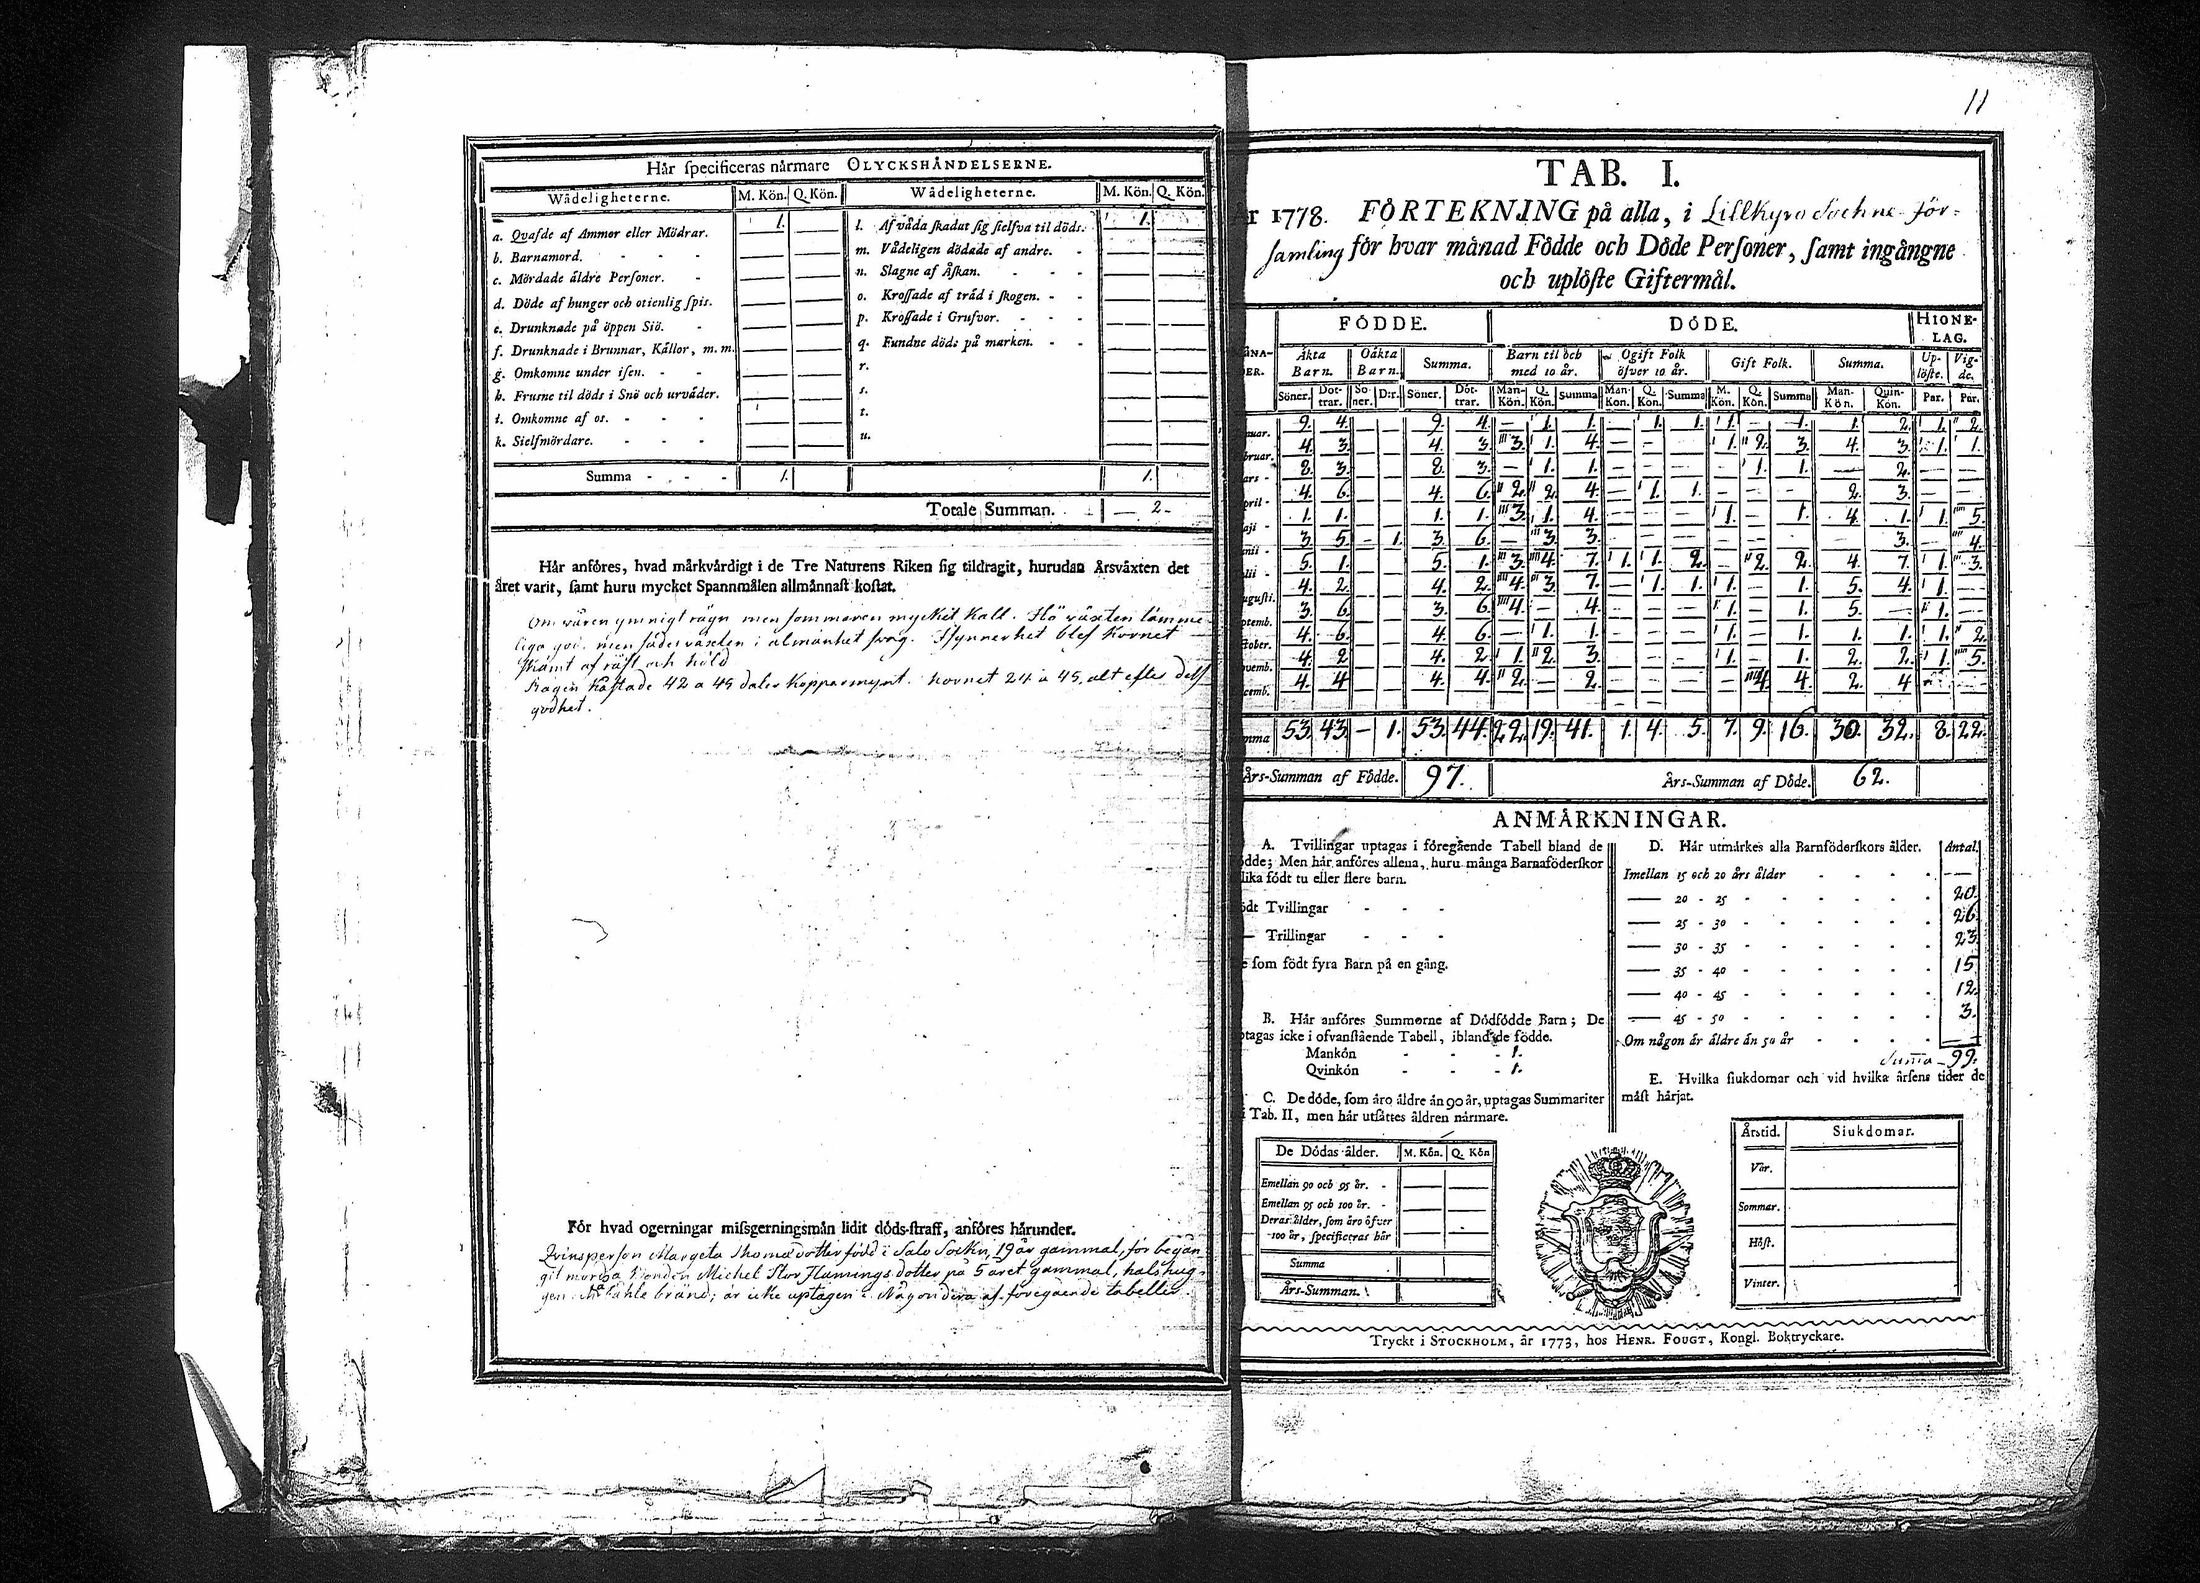 Hår ſpecificeras nårmare OLYCKSHÅNDELSERNE.
Wådeligheterne. M. Kön. Q. Kön. Wådeligheterne. M. Kön. Q. Kön.
a. Qvafde af Ammor eller Mödrar. 1. l. Af våda ſkadat ſig ſielfva til döds. 1.
b. Barnamord. m. Vådeligen dödade af andre.
c. Mördade äldre Perſoner. n. Slagne af Åſkan.
d. Döde af hunger och otienlig ſpis. o. Kroſſade af träd i ſkogen.
e. Drunknade på öppen Siö. p. Kroſſade i Grufvor.
f. Drunknade i Brunnar, Källor, m. m. q. Fundne döds på marken.
g. Omkomne under iſen. r.
h. Fruſne til döds i Snö och urväder. s.
i. Omkomne af os. t.
k. Sielfmördare. u.
Summa 1. 1.
Totale Summan. 2.
Hår anföres, hvad mårkvårdigt i de Tre Naturens Riken ſig tildragit, hurudan Årsvåxten det
året varit, ſamt huru mycket Spannmålen allmånnaſt koſtat.
Om våren ymnigt rägn men sommaren mycket kall. Hö växten tämme
liga god. men sädesväxten i almänhet svag. Isynnerhet blef Kornet
skämt af och
Rågen kostade 42 a 45 daler Kopparmynt. Kornet 24 a 45, alt efter dess
godhet.
Fór hvad ogerningar miſsgerningsmån lidit dóds-ſtraff, anföres hårunder.
Qvinsperson Margeta Thomædotter född i Salo Sockn, 19 år gammal, för begån
git mord Bonden Michel Stor Flamings dotter på 5 året gammal, halshug
gen och i båhle bränd; är icke uptagen i Någondera af föregående tabeller.
11
TAB. I.
År 1778. FÖRTEKNING på alla, i Lillkyro Sochne För-
samling för hvar månad Födde och Döde Perſoner, ſamt ingångne
och uplöſte Giftermål.
FÖDDE. DÖDE. HIONE-LAG.
Äkta Barn. Oäkta Barn. Summa. Barn til och med 10 år. Ogift Folk öfver 10 år. Gift Folk. Summa. Up-löſte. Vig-de.
Söner. Dót-trar. So-ner. D:r. Söner. Dót-trar. Man-Kön. Q. Kön. Summa Man-Kon. Q. Kön. Summa M. Kön. Q. Kön. Summa Man-Kön. Quin-Kön. Par. Par.
nuar. 9. 4. 9. 4. — 1. 1. — 1. 1. 1. — 1. 1. 2. 1. 2.
bruar. 4. 3. 4. 3. 3. 1. 4. — — 1. 2. 3. 4. 3. 1. 1.
ars - 8. 3. 8. 3. — 1. 1. — — — 1. 1. — 2.
pril - 4. 6. 4. 6. 2. 2. 4. — 1. 1. — — — 2. 3. —
aji - 1. 1. 1. 1. 3. 1. 4. — — — 1. — 1. 4. 1. 1. 5.
nii - 3. 5. - 1. 3. 6. — 3. 3. — — — — 3. — 4.
lii - 5. 1. 5. 1. 3. 4. 7. 1. 1. 2. — 2. 2. 4. 7. 1. 3.
uguſti. 4. 2. 4. 2. 4. 3. 7. — 1. 1. 1. — 1. 5. 4. 1.
ptemb. 3. 6. 3. 6. 4. — 4. — — — 1. — 1. 5. — 1. —
ctober. 4. 6. 4. 6. — 1. 1. — — — 1. — 1. 1. 1. 1. 2.
ovemb. 4. 2 4. 2. 1. 2. 3. — — — 1. — 1. 2. 2. 1. 5.
cemb. 4. 4 4. 4. 2. — 2. — — — — 4. 4. 2. 4
mma 53. 43. — 1. 53. 44. 22. 19. 41. 1. 4. 5. 7. 9. 16. 30. 32. 8. 22.
Års-Summan af Födde. 97. Års-Summan af Döde. 62.
ANMÅRKNINGAR.
A. Tvillingar uptagas i föregående Tabell bland de
ödde; Men hår anföres allena, huru många Barnaföderſkor
lika födt tu eller flere barn.
ödt Tvillingar
— Trillingar
e ſom födt fyra Barn på en gång.
B. Hår anföres Summorne af Dödfödde Barn; De
ptagas icke i ofvanſtående Tabell, ibland de födde.
Mankön 1.
Qvinkön 1.
C. De döde, ſom äro åldre än 90 år, uptagas Summariter
i Tab. II, men hår utſåttes åldren nårmare.
De Dödas ålder. M. Kön. Q. Kön
Emellan 90 och 95 år.
Emellan 95 och 100 år.
Deras ålder, ſom äro öfver
100 år, ſpecificeras hår
Summa
Års-Summan.
D. Hår utmårkes alla Barnföderſkors ålder. Antal.
Imellan 15 och 20 års ålder —
— 20 - 25 20.
— 25 - 30 26.
— 30 - 35 23.
— 35 - 40 15
— 40 - 45 12.
— 45 - 50 3.
Om någon är äldre än 50 år —
Summa 99.
E. Hvilka ſiukdomar och vid hvilka årſens tider de
måſt hårjat.
Årstid. Siukdomar.
Vår.
Sommar.
Höſt.
Vinter.
Tryckt i STOCKHOLM, år 1773, hos HENR. FOUGT, Kongl. Boktryckare.